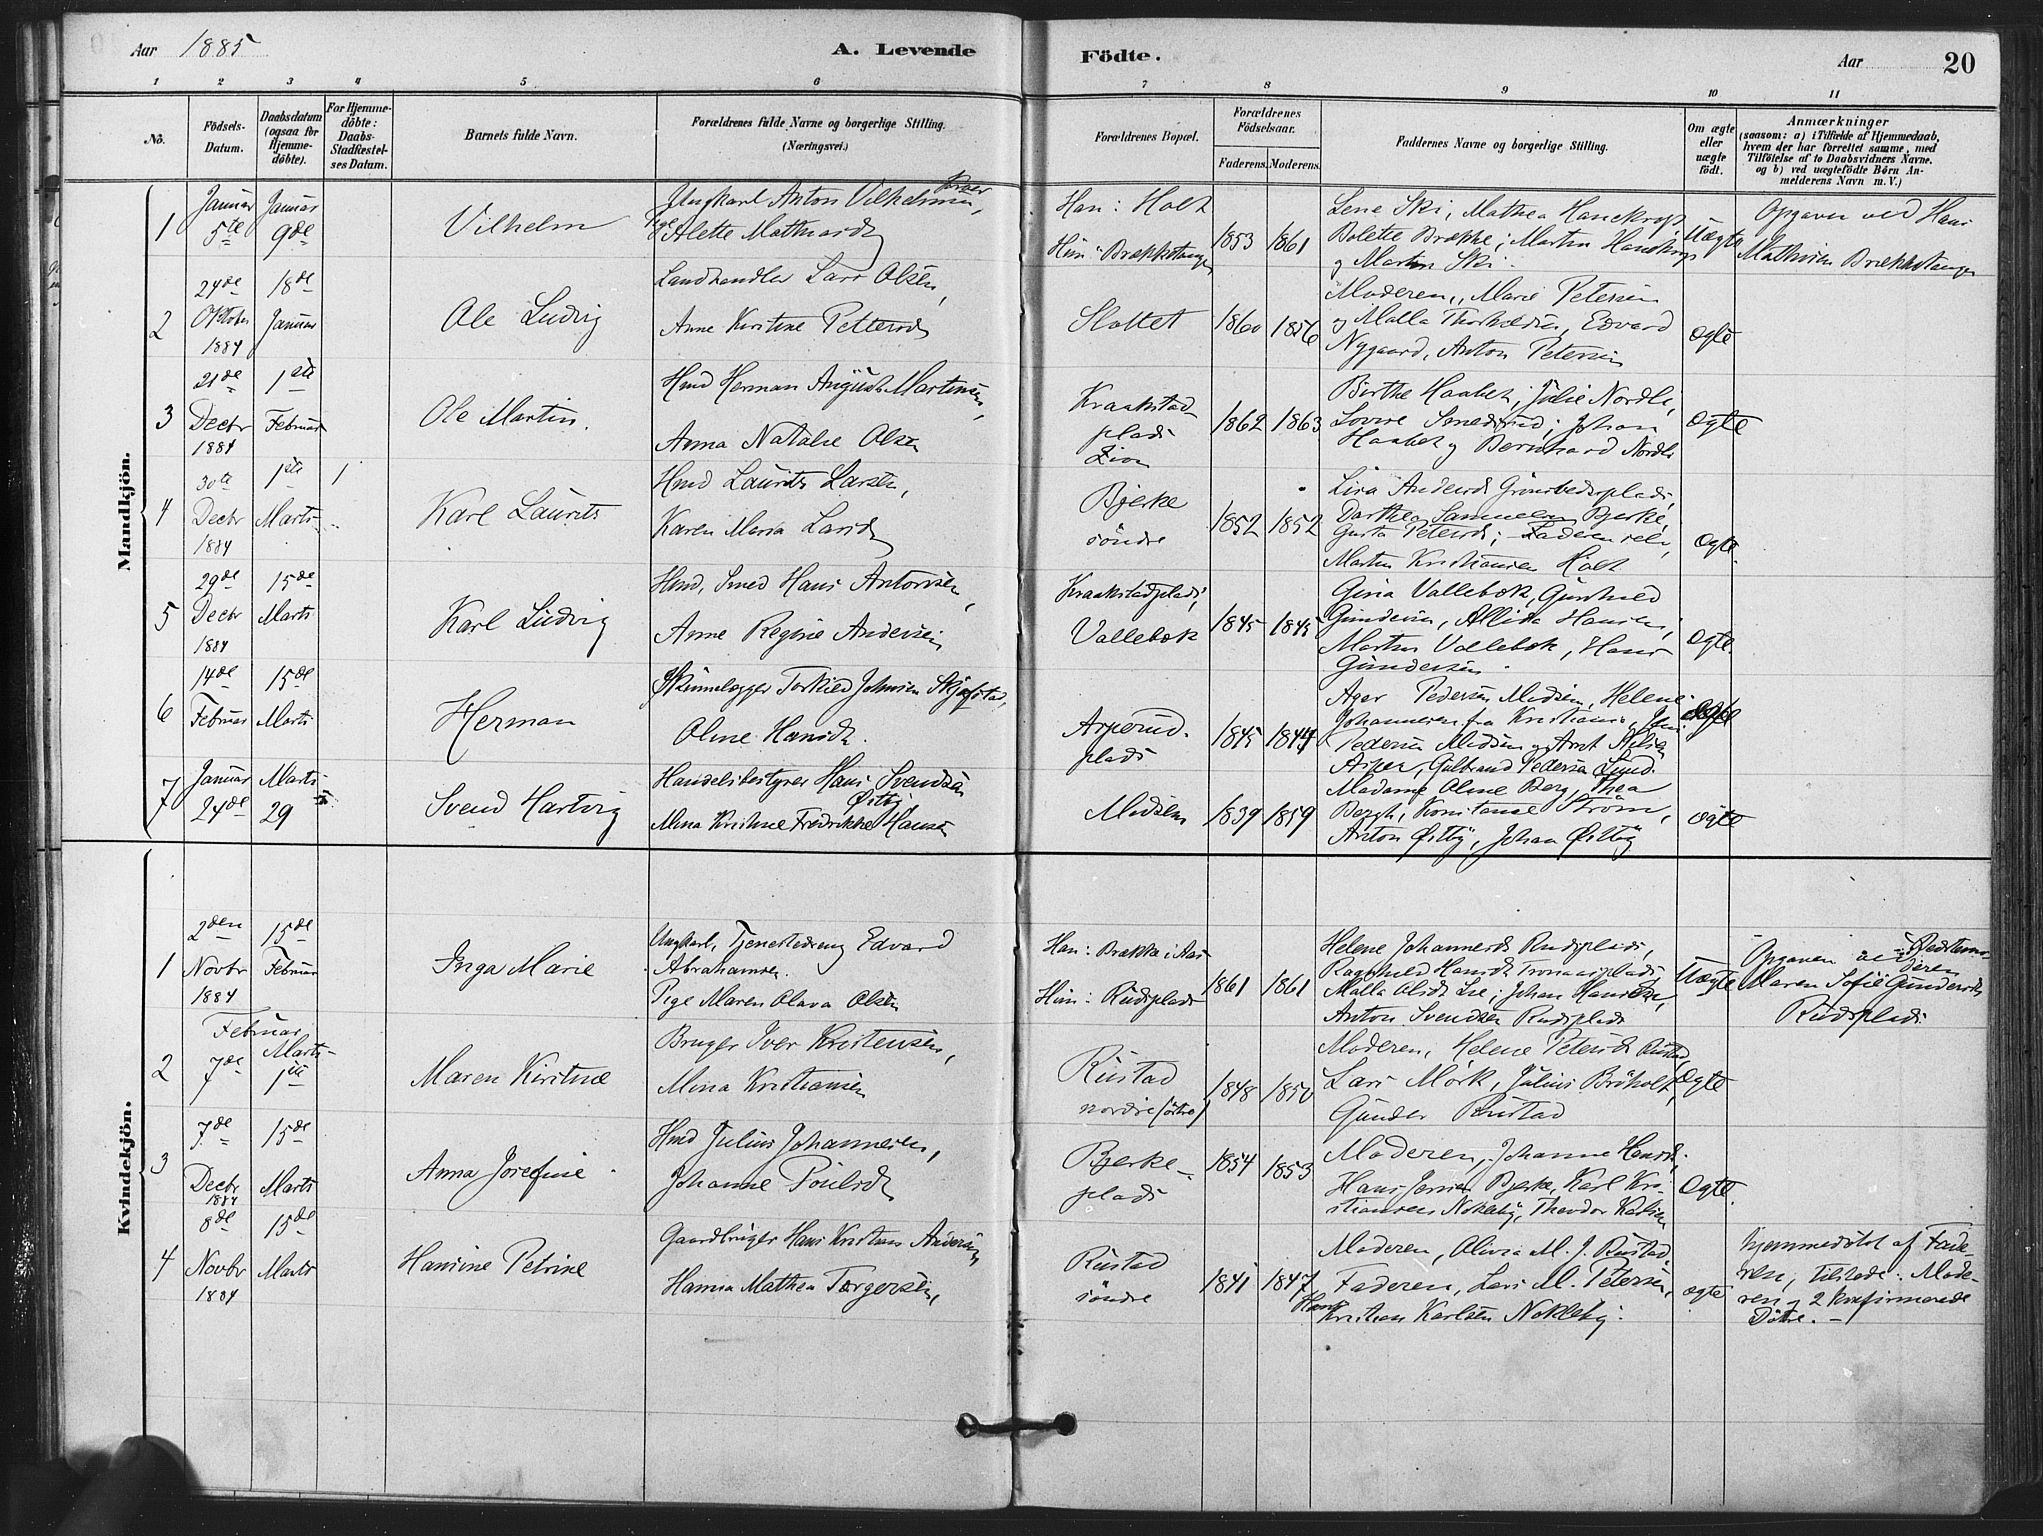 Aar 1885
A. Levende
Födte.
Aar
20
1 2 3 4 5 6 7 8 9 10 11
No.
Födsels-
Datum.
Daabsdatum
(ogsaa for
Hjemme-
döbte).
For Hjemme-
döbte:
Daabs-
Stadfæstel-
ses Datum.
Barnets fulde Navn.
Forældrenes fulde Navne og borgerlige Stilling.
(Næringsvei.)
Forældrenes Bopæl.
Forældrenes
Födselsaar.
Faderens. Moderens.
Faddernes Navne og borgerlige Stilling.
Om ægte
eller
uægte
födt.
Anmærkninger
(saasom: a) i Tilfælde af Hjemmedaab,
hvem der har forrettet samme, med
Tilföielse af to Daabsvidners Navne,
og b) ved uægtefödte Börn An-
melderens Navn m. V.)
Mandkjön.
1
Januar
5te
Januar
9de
Vilhelm
Ungkarl Anton Vilhelmsen,
Pige Alette Mathiasdr
Han: Holt
Hun: Brækkstangen
1853
1861
Lena Ski, Mathea
Bolette Brække; Martin
og Martin Ski.
Uægte
Opgaven ved Hans
Mathisen Brækkestangen
2
24de
Oktober
1884
18de
Januar
Ole Ludvig
Landhandler Lars Olsen,
Anne Kirstine Pettersdr
Slottet
1860
1856
Moderen, Marie Petersen
og Malla Thorkildsen, Edvard
Nygaard, Anton Petersen
ægte
3
21de
Decbr
1884
1ste
Februar
Ole Martin.
Hmd Herman August Martinsen,
Anna Natalie Olsen
Kraakstad-
plads
Zion
1862
1863
Birthe Haabet, Julie Nordli,
Lovise Smedsrud; Johan
Haabet og Bernhard Nordli
ægte
4
30te
Decbr
1884
1ste
Marts
1
Karl Laurits
Hmd Laurits Larsen,
Karen Maria Larsdr
Bjerke
söndre
1852
1852
Lisa Andersdr
Dorthea Samuelsen Bjerke,
Gusta Petersdr; Faderen selv,
Martin Kristiansen Holt
ægte.
5
29de
Decbr
1884
15de
Marts
Karl Ludvig
Hmd, Smed Hans Antonsen,
Anne Regine Andersen
Kraakstadplads,
Vallebæk
1845
1845
Gina Vallebæk, Gunhild
Gundersen, Allida Hansen,
Martin Vallebæk, Hans
Gundersen.
ægte.
6
14de
Februar
15de
Marts
Herman
Torkild Johnsen Skjøfstad,
Oline Hansdr.
Asperud-
plads
1845
1844
Pedersen Midsem, Helene
Johannesen fra Kristiania, Jens
Pedersen Midsem og Arnt Nilsen
Asper, Gulbrand Pedersen Sund.
ægte
7
Januar
24de
Marts
29
Svend Hartvig
Handelsbestyrer Hans Svendsen
Østby
Mina Kristine Fredrikke Hansen
Midsem
1839
1859
Madame Oline Berg, Thea
Bergh, Konstance Strøm,
Anton Østby, Johan Østby
ægte
Kvindekjön.
1
2den
Novbr
1884
15de
Februar
Inga Marie
Ungkarl, Tjenestedreng Edvard
Abrahamsen.
Pige Maren Olava Olsen
Han: Brække i Aas
Hun: Rudsplads
1861
1861
Helene Johannesdr Rudsplads,
Ragnhild Hansdr
Malla Olsdr; Johan Hansen,
Anton Svendsen Rudsplads
Uægte
Opgaven ved Bedstemo-
deren
Maren Sofie Gundersdr
Rudsplads.
2
Februar
7de
Marts
1ste
Maren Kirstine
Bruger Iver Kristensen,
Mina Kristiansen
Rustad
nordre (östre)
1848
1850
Moderen, Helene Petersdr Rustad,
Lars Mørk, Julius Bröholt,
Gunder Rustad
ægte
3
7de
Decbr
1884
15de
Marts
Anna Josefine
Hmd Julius Johannesen,
Johanne Poulsdr
Bjerke-
plads
1854
1853
Moderen, Johanne Hansdr.
Hans Jensen Bjerke, Karl Kri-
stiansen Nøkleby, Theodor Karlsen
ægte.
4
8de
Novbr
1884
15de
Marts
Hansine Petrine
Gaardbruger Hans Kristian Andersen
Hanna Mathea Torgersen,
Rustad
söndre
1841
1847
Moderen, Olivia M. J. Rustad,
Faderen, Lars M. Petersen,
Hans
Kristian Karlsen Nøkleby.
ægte
hjemmedöbt af Fade-
ren, tilstede: Mode-
ren og 2 konfirmerede
Døtre. –